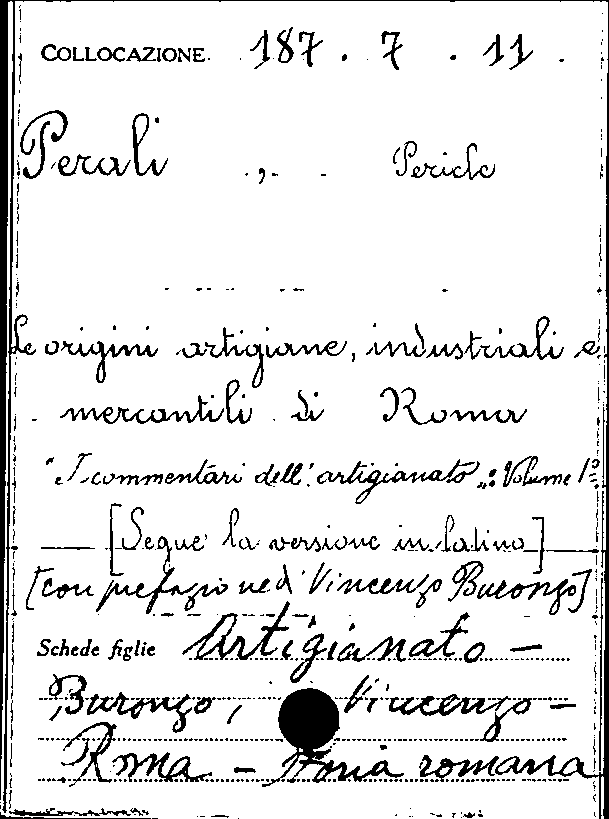 COLLOCAZIONE 187 . 7 . 11 .
Perali , Pericle
Le origini artigiane, industriali e
mercantili di Roma
"I commentari dell'artigianato„: Volume 1º.
[Segue la versione in latino]
[con prefazione di Vincenzo Buronzo]
Schede figlie Artigianato -
Buronzo, Vincenzo -
Roma - Storia romana